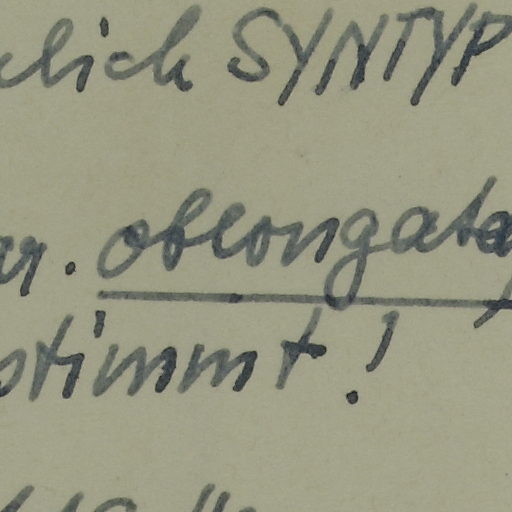 lich SYNTYP
ar. oblongata
stimmt!